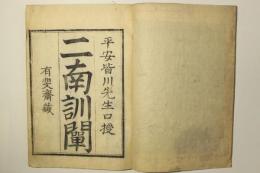 平安皆川先生口授
二南訓闡
有斐齋藏